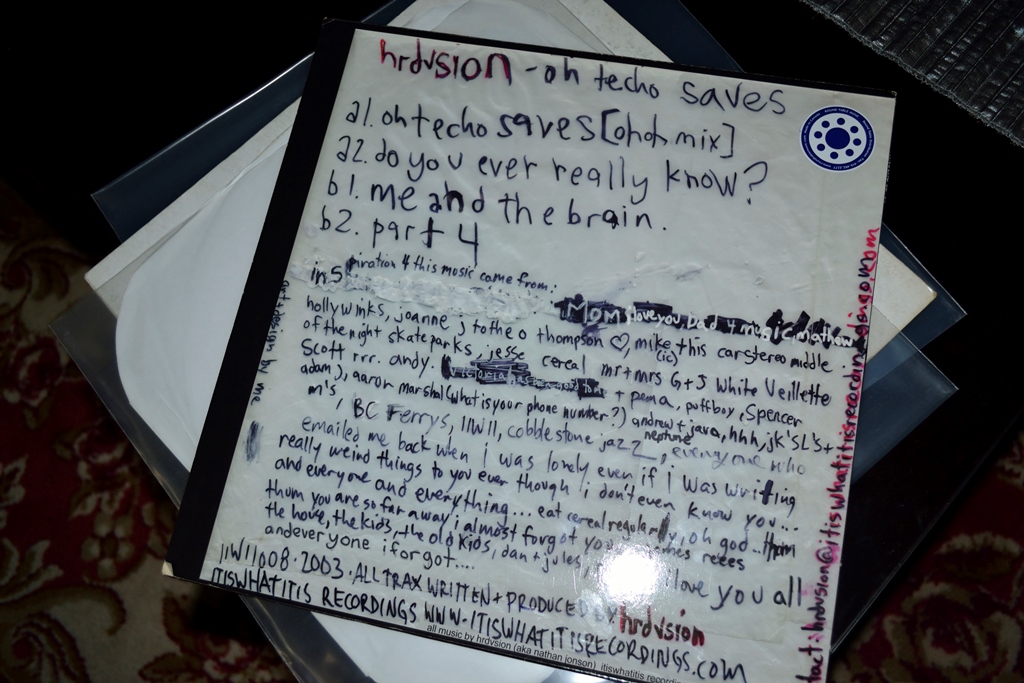 hrdvsion - oh techo saves
a1. oh techo saves [ohoh mix]
a2. do you ever really know?
b1. me and the brain.
b2. part 4
inspiration 4 this music came from:
Mom I love you
hollywinks, joanne j to the o thompson ♡, mike, this car stereo middle
of the night skate parks, jesse cereal mr + mrs G + J White Veillette
scott rrr. andy. + pema, puffboy, Spencer
adam j, aaron marshal (what is your phone number?) andrew + java, hhh, jk's L's +
m's, BC Ferrys, IIWII, cobblestone jazz, neptune, everyone who
emailed me back when i was lonely even if i was writing
really weird things to you even though i don't even know you...
and everyone and everything... eat cereal regularly, oh god.. tham
thum you are so far away i almost forgot you reees
the hove, the kids, the old kids, dan + jules love you all
and everyone i forgot....
IIWII008 · 2003 · ALL TRAX WRITTEN + PRODUCED BY hrdvsion
ITISWHATITIS RECORDINGS WWW.ITISWHATITISRECORDINGS.COM
all music by hrdvsion (aka nathan jonson) itiswhatitis
art + design by me
tact: hrdvsion@itiswhatitisrecordings.com